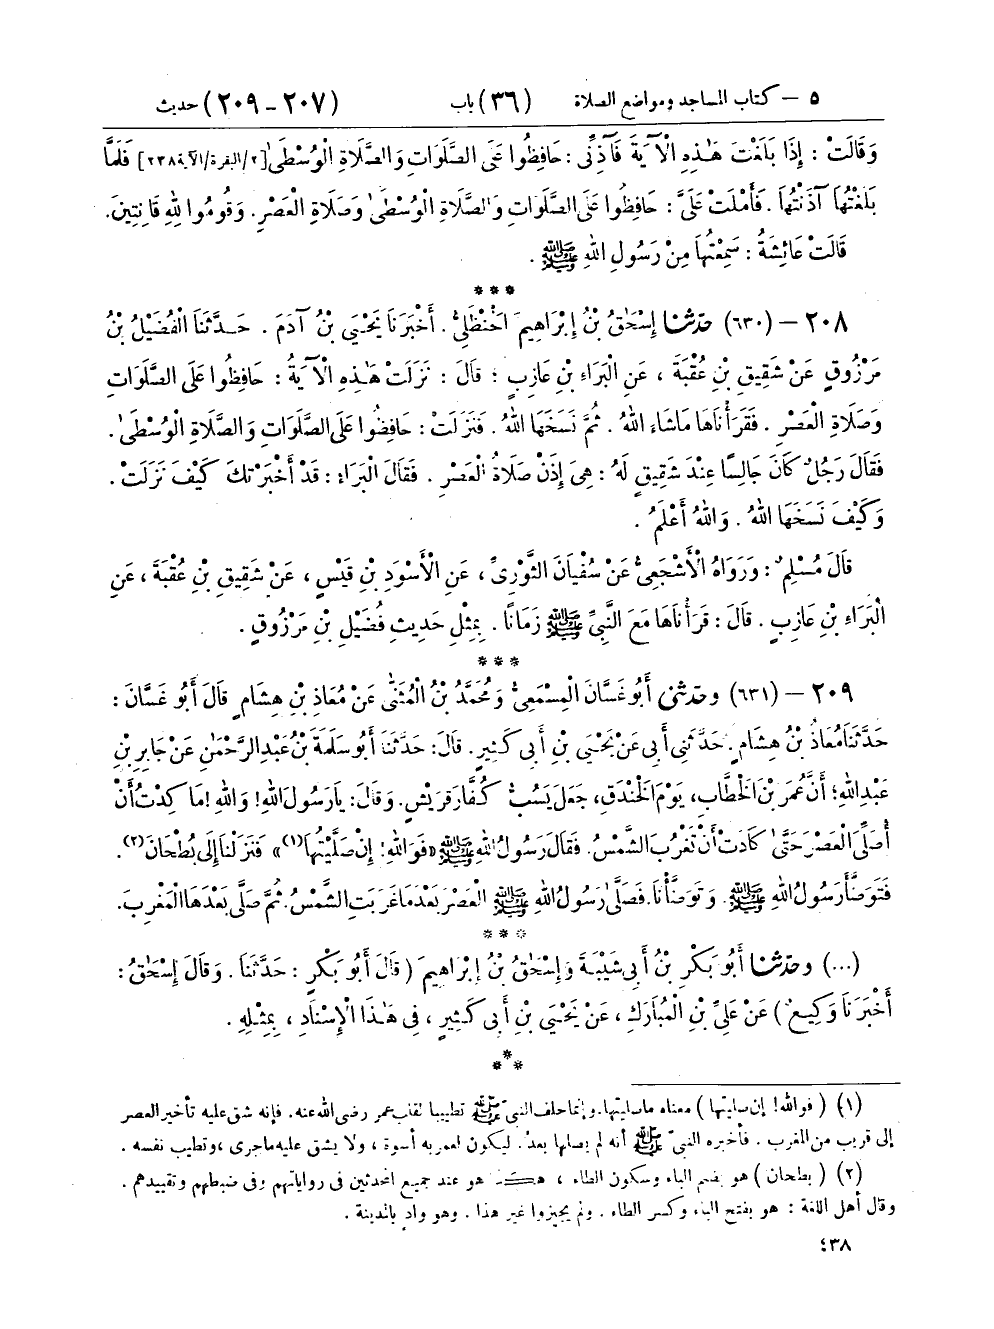 ٥ – كتاب المساجد ومواضع الصلاة (٣٦) باب (٢٠٧ – ٢٠٩) حديث
وَقَالَتْ : إِذَا بَلَغْتَ هَٰذِهِ الْآيَةَ فَآذِنِّى : حَافِظُوا عَلَى الصَّلَوَاتِ وَالصَّلَاةِ الْوُسْطَىٰ [٢/البقرة/الآية ٢٣٨] فَلَمَّا
بَلَغْتُهَا آذَنْتُهَا . فَأَمْلَتْ عَلَىَّ : حَافِظُوا عَلَى الصَّلَوَاتِ وَالصَّلَاةِ الْوُسْطَىٰ وَصَلَاةِ الْعَصْرِ . وَقُومُوا لِلهِ قَانِتِينَ .
قَالَتْ عَائِشَةُ : سَمِعْتُهَا مِنْ رَسُولِ اللهِ ﷺ .
***
٢٠٨ – (٦٣٠) حدّثنا إِسْحَٰقُ بْنُ إِبْرَاهِيمَ الْحَنْظَلِىُّ . أَخْبَرَنَا يَحْيَى بْنُ آدَمَ . حَدَّثَنَا الْفُضَيْلُ بْنُ
مَرْزُوقٍ عَنْ شَقِيقِ بْنِ عُقْبَةَ ، عَنِ الْبَرَاءِ بْنِ عَازِبٍ ؛ قَالَ : نَزَلَتْ هَٰذِهِ الْآيَةُ : حَافِظُوا عَلَى الصَّلَوَاتِ
وَصَلَاةِ الْعَصْرِ . فَقَرَأْنَاهَا مَا شَاءَ اللهُ . ثُمَّ نَسَخَهَا اللهُ . فَنَزَلَتْ : حَافِظُوا عَلَى الصَّلَوَاتِ وَالصَّلَاةِ الْوُسْطَىٰ .
فَقَالَ رَجُلٌ كَانَ جَالِسًا عِنْدَ شَقِيقٍ لَهُ : هِىَ إِذَنْ صَلَاةُ الْعَصْرِ . فَقَالَ الْبَرَاءِ : قَدْ أَخْبَرْتكَ كَيْفَ نَزَلَتْ .
وَكَيْفَ نَسَخَهَا اللهُ . وَاللهُ أَعْلَمُ .
قَالَ مُسْلِمٌ : وَرَوَاهُ الْأَشْجَعِىُّ عَنْ سُفْيَانَ الثَّوْرِىِّ ، عَنِ الْأَسْوَدِ بْنِ قَيْسٍ ، عَنْ شَقِيقِ بْنِ عُقْبَةَ ، عَنِ
الْبَرَاءِ بْنِ عَازِبٍ . قَالَ : قَرَأْنَاهَا مَعَ النَّبِىِّ ﷺ زَمَانًا . بِمِثْلِ حَدِيثِ فُضَيْلِ بْنِ مَرْزُوقٍ .
***
٢٠٩ – (٦٣١) وحدّثنى أَبُو غَسَّانَ الْمِسْمَعِىُّ وَمُحَمَّدُ بْنُ الْمُثَنَّىٰ عَنْ مُعَاذِ بْنِ هِشَامٍ قَالَ أَبُو غَسَّانَ :
حَدَّثَنَا مُعَاذُ بْنُ هِشَامٍ . حَدَّثَنِى أَبِى عَنْ يَحْيَى بْنِ أَبِى كَثِيرٍ . قَالَ : حَدَّثَنَا أَبُو سَلَمَةَ بْنُ عَبْدِ الرَّحْمَٰنِ عَنْ جَابِرِ بْنِ
عَبْدِ اللهِ ؛ أَنَّ عُمَرَ بْنَ الْخَطَّابِ ، يَوْمَ الْخَنْدَقِ ، جَعَلَ يَسُبُّ كُفَّارَ قُرَيْشٍ . وَقَالَ : يَا رَسُولَ اللهِ ! وَاللهِ ! مَا كِدْتُ أَنْ
أُصَلِّىَ الْعَصْرَ حَتَّىٰ كَادَتْ أَنْ تَغْرُبَ الشَّمْسُ . فَقَالَ رَسُولُ اللهِ ﷺ « فَوَاللهِ ! إِنْ صَلَّيْتُهَا(١) » فَنَزَلْنَا إِلَى بُطْحَانَ(٢) .
فَتَوَضَّأَ رَسُولُ اللهِ ﷺ . وَتَوَضَّأْنَا . فَصَلَّىٰ رَسُولُ اللهِ ﷺ الْعَصْرَ بَعْدَ مَا غَرَبَتِ الشَّمْسُ . ثُمَّ صَلَّى بَعْدَهَا الْمَغْرِبَ .
***
(...) وحدّثنا أَبُو بَكْرِ بْنُ أَبِى شَيْبَةَ وَإِسْحَٰقُ بْنُ إِبْرَاهِيمَ ( قَالَ أَبُو بَكْرٍ : حَدَّثَنَا . وَقَالَ إِسْحَٰقُ :
أَخْبَرَنَا وَكِيعٌ ) عَنْ عَلِىِّ بْنِ الْمُبَارَكِ ، عَنْ يَحْيَى بْنِ أَبِى كَثِيرٍ ، فِى هَٰذَا الْإِسْنَادِ ، بِمِثْلِهِ .
***
(١) ( فوالله ! إن صليتها ) معناه ما صليتها . وإنما حلف النبىّ ﷺ تطييبا لقلب عمر رضى الله عنه . فإنه شق عليه تأخير العصر
إلى قريب من المغرب . فأخبره النبىّ ﷺ أنه لم يصلها بعدُ . ليكون لعمر به أسوة ، ولا يشق عليه ماجرى ، وتطيب نفسه .
(٢) ( بطحان ) هو بضم الباء وسكون الطاء ، هكذا هو عند جميع المحدثين فى رواياتهم وفى ضبطهم وتقييدهم .
وقال أهل اللغة : هو بفتح الباء وكسر الطاء . ولم يجيزوا غير هذا . وهو وادٍ بالمدينة .
٤٣٨